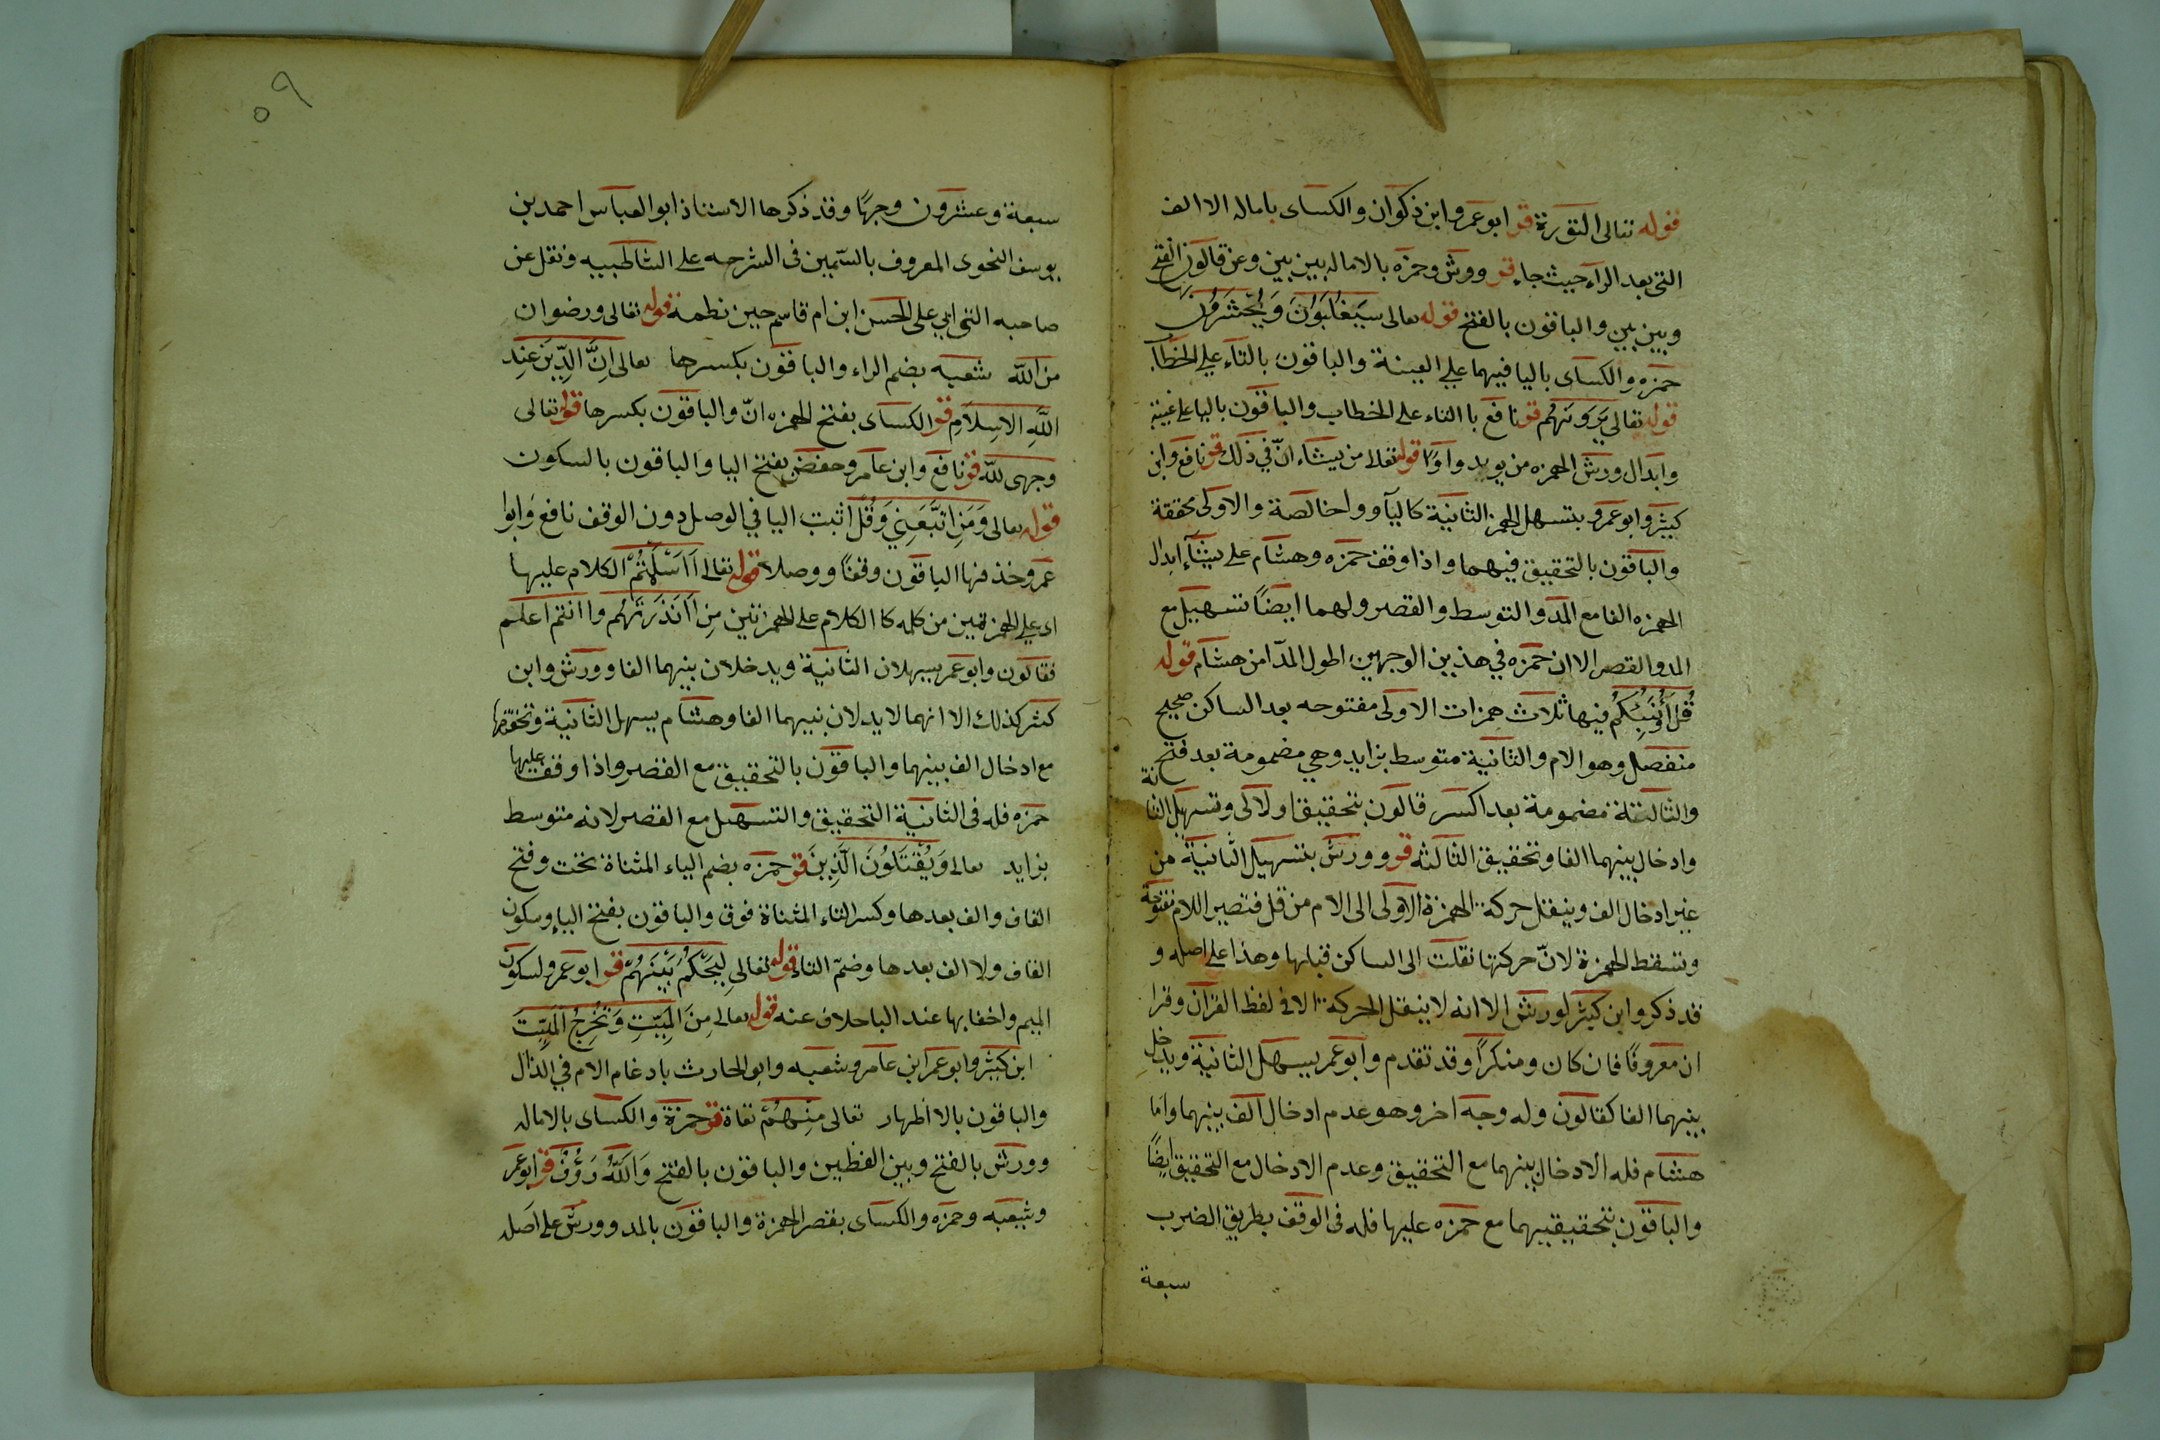 قوله تعالى التورىة قو ابو عمرو وابن ذكوان والكساى بامالة الاالف
التى بعد الرآء حيث جاء قو وورش وحمزه بالاماله بين بين وعن قالون الفتح
وبين بين والباقون بالفتح قوله تعالى سيغلبون ويحشرون
حمزه والكساى باليا فيهما علي الغيبة والباقون بالتآء علي الخطاب
قوله تعالى يرونهم قو نافع با التاء على الخطاب والباقون باليا على غيبة
وابدال ورش الهمزه من يويد واوًا قوله تعالى من يشاء انّ في ذلك قو نافع وابن
كيثر وابو عمرو بتسهل الهمز الثانية كاليآء وواخالصة والاولى محققة
والباقون بالتحقيق فيهما واذا وقف حمزه وهشام على يشآء ابدال
الهمزه الفا مع المد والتوسط والقصر ولهما ايضًا تسهيل مع
المد والقصر الا ان حمزه في هذين الوجهين اطول المدّا من هشام قوله
قل أؤنبئكم فيها ثلاث همزات الاولى مفتوحه بعد الساكن صحيح
منفصل وهو الام والثانية متوسط بزايد وهي مضمومة بعد فتح
والثالثة مضمومة بعد اكسر قالون بتحقيق اولالى وتسهيل الثانية
وادخال بينهما الفا وتحقيق الثالثه قو وورش بتسهيل الثانية من
غير ادخال الف وينقل حركة الهمزة الاولى الى الام من قل فتصير اللام مفتوحة
وتسقط الهمزة لانّ حركتها نقلت الى الساكن قبلها وهذا على اصله و
قد ذكر وابن كيثر لورش الا انه لا ينقل الحركة الا في لفظ القرآن وقرا
ان معروفًا فان كان ومنكرًا وقد تقدم وابو عمر يسهل الثانية ويدخل
بينهما الفا كقالون وله وجه اخر وهو عدم ادخال الف بينهما واما
هشام فله الادخال بينهما مع التحقيق وعدم الادخال مع التحقيق ايضًا
والباقون بتحقيقيهما مع حمزه عليها فله فى الوقف بطريق الضرب
سبعة
٥٩
سبعة وعشرون وجهًا وقد ذكرها الاستاذ ابو العباس احمد بن
يوسف النحوى المعروف بالسّمين فى الشرحه على الشاطبيه ونقل عن
صاحبه التى ابي على الحسن ابن ام قاسم حين نظمة قوله تعالى ورضوان
من الله شعبه بضم الراء والباقون بكسرها تعالى انّ الدّين عند
اللّه الاسلام قو الكساى بفتح الهمزه انّ والباقون بكسرها قوله تعالى
وجهى للّه قو نافع وابن عامر وحفض بفتح اليا والباقون بالسكون
قوله تعالى ومن اتبعني وقل اثبت اليا في الوصل دون الوقف نافع وابوا
عمر وحذفها الباقون وقفًا ووصلا قوله تعالى أاسلمتم الكلام عليها
اى علي الهمزتين من كلمه كا الكلام على الهمزتين من أانذرتهم واانتم اعلم
فقالون وابو عمر يسهلان الثانية ويدخلان بينهما الفا وورش وابن
كثر كذلك الا انهما لا يدلان بيهما الفا وهشام يسهل الثانية وتحققها
مع ادخال الف بينهما والباقون بالتحقيق مع القضر واذا وقف عليها
حمزه فله فى الثانية التحقيق والتسهيل مع القصر لانه متوسط
بزايد تعالى ويقتلون الّذين قو حمزه بضم الياء المثناة تخت وفتح
القاف والف بعدها وكسر التاء المثناة فوق والباقون بفتخ الياء وسكون
القاف ولا الف بعدها وضمّ التا قوله تعالي ليحكم بينهم قو ابو عمرو لسكون
الميم واخفابها عند البا خلاف عنه قوله تعالى من الميّت وتخرج الميّت
ابن كيثر وابو عمر ابن عامر وشعبه وابو الحارث بادغام الام في الذال
والباقون بالا اظهار تعالى منهم تقاة قو حمزة والكساى بالاماله
وورش بالفتح وبين الفظين والباقون بالفتح واللّه رؤف قو ابو عمر
وشعبه وحمزه والكساى بقصر الهمزة والباقون بالمد وورش على اصله